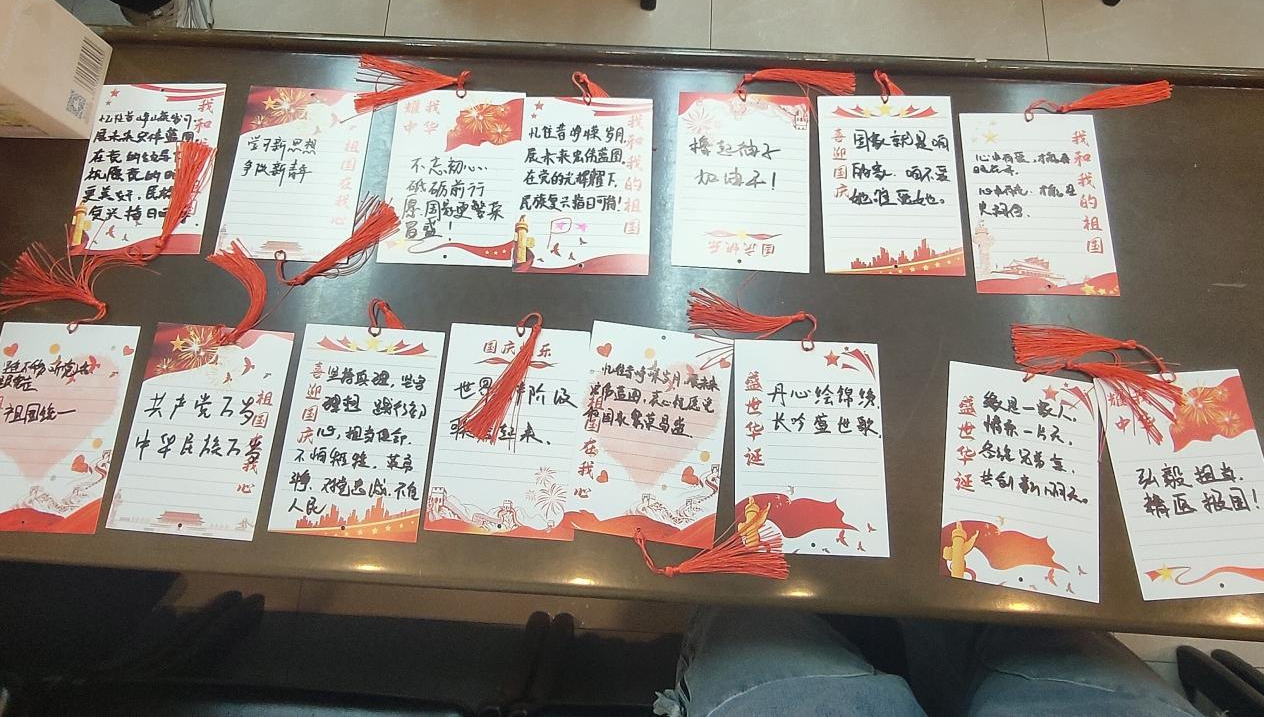 我和我的祖国
忆往昔峥嵘岁月
展未来宏伟蓝图
在党的领导下
更美好,民族
复兴指日可待!
祖国在我心
学习新思想
争做新青年
耀我
中华
不忘初心…
砥砺前行
愿国家更繁荣
昌盛!
我和我的祖国
忆往昔峥嵘岁月
展未来宏伟蓝图
在党的光辉耀下,
民族复兴指日可待!
撸起袖子
加油干!
国庆快乐
喜迎国庆
国家就是咱
的家,咱不爱
她谁爱她。
我和我的祖国
祖国统一
祖国在我心
共产党万岁
中华民族万岁
喜迎国庆
坚持真理,坚守
理想 践行初
心,担当使命
不怕牺牲,英勇
斗争,对党忠诚,不负
人民
国庆快乐
世界
起来.
祖国在我心
忆往昔峥嵘岁月,展未来
宏伟蓝图,衷心祝愿党
和国家繁荣昌盛.
盛世华诞
丹心绘锦绣,
长吟盛世歌.
盛世华诞
家是一家人,
情系一片天,
共创新明天。
耀我
中华
弘毅担当,
精医报国!